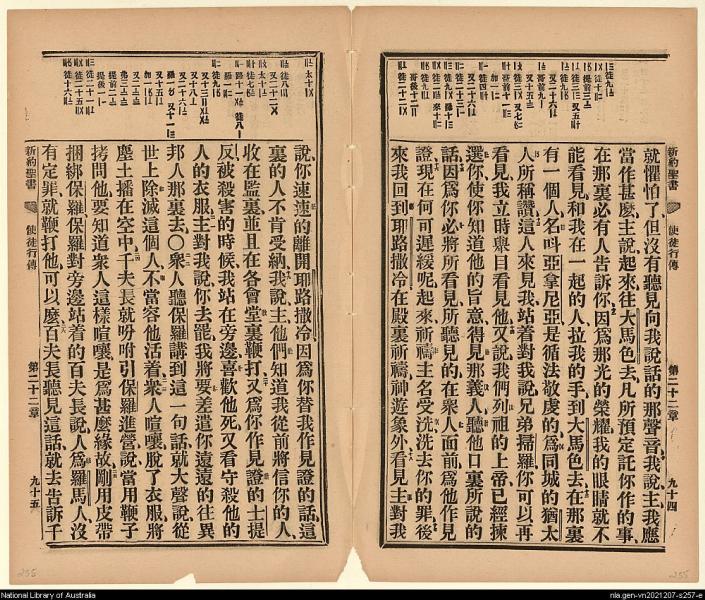 就懼怕了但沒有聽見向我說話的那聲音我說主我應
當作甚麼主說起來往大馬色去凡所預定託你作的事
在那裏必有人告訴你因爲那光的榮耀我的眼睛就不
能看見和我在一起的人拉我的手到大馬色去在那裏
有一個人名呌亞拿尼亞是循法敬虔的爲同城的猶太
人所稱讚這人來見我站着對我說兄弟掃羅你可以再
看見我立時舉目看見他又說我們列祖的上帝已經揀
選你使你知道他的旨意得見那義人聽他口裏所說的
話因爲你必將所看見所聽見的在衆人面前爲他作見
證現在何可遲緩呢起來祈禱主名受洗洗去你的罪後
來我回到耶路撒冷在殿裏祈禱神遊象外看見主對我
新約聖書
使徒行傳
第二十二章
九十四
說你速速的離開耶路撒冷因爲你替我作見證的話這
裏的人不肯受納我說主他們知道我從前將信你的人
收在監裏並且在各會堂裏鞭打又爲你作見證的士提
反被殺害的時候我站在旁邊喜歡他死又看守殺他的
人的衣服主對我說你去罷我將要差遣你遠遠的往異
邦人那裏去〇衆人聽保羅講到這一句話就大聲說從
世上除滅這個人不當容他活着衆人喧嚷脫了衣服將
塵土播在空中千夫長就吩咐引保羅進營說當用鞭子
拷問他要知道衆人這樣喧嚷是爲甚麼緣故剛用皮帶
捆綁保羅保羅對旁邊站着的百夫長說人爲羅馬人沒
有定罪就鞭打他可以麼百夫長聽見這話就去告訴千
新約聖書
使徒行傳
第二十二章
九十五
255
255
National Library of Australia
nla.gen-vn2021207-s257-e